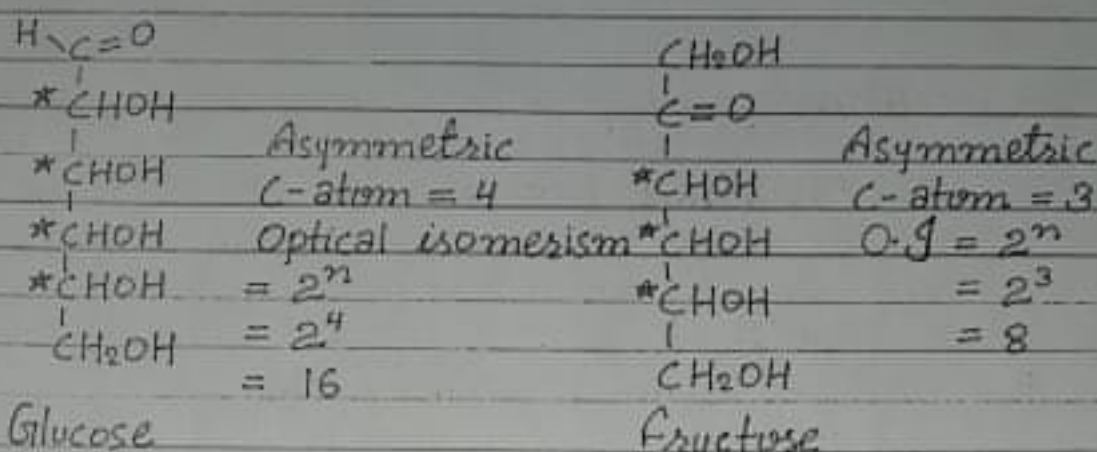 H\C=O
*CHOH
*CHOH
*CHOH
*CHOH
CH₂OH
Glucose
Asymmetric
C-atom = 4
Optical isomerism
= 2ⁿ
= 2⁴
= 16
CH₂OH
C=O
*CHOH
*CHOH
*CHOH
CH₂OH
Fructose
Asymmetric
C-atom = 3
O.I = 2ⁿ
= 2³
= 8